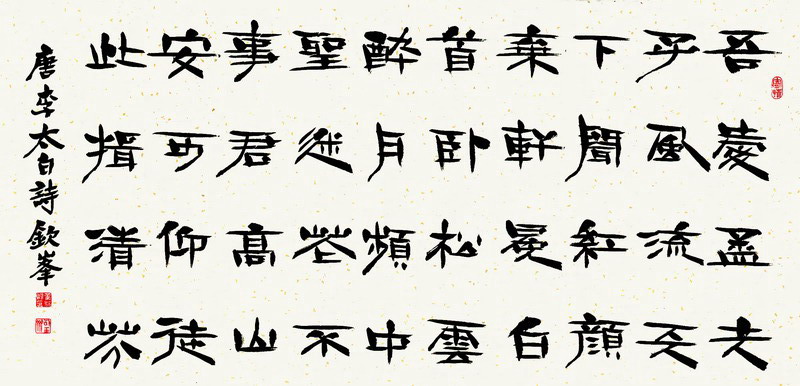 吾愛孟夫
子風流天
下聞紅顔
棄軒冕白
首卧松雲
醉月頻中
聖迷花不
事君高山
安可仰徒
此揖清芬
唐李太白詩欽峯